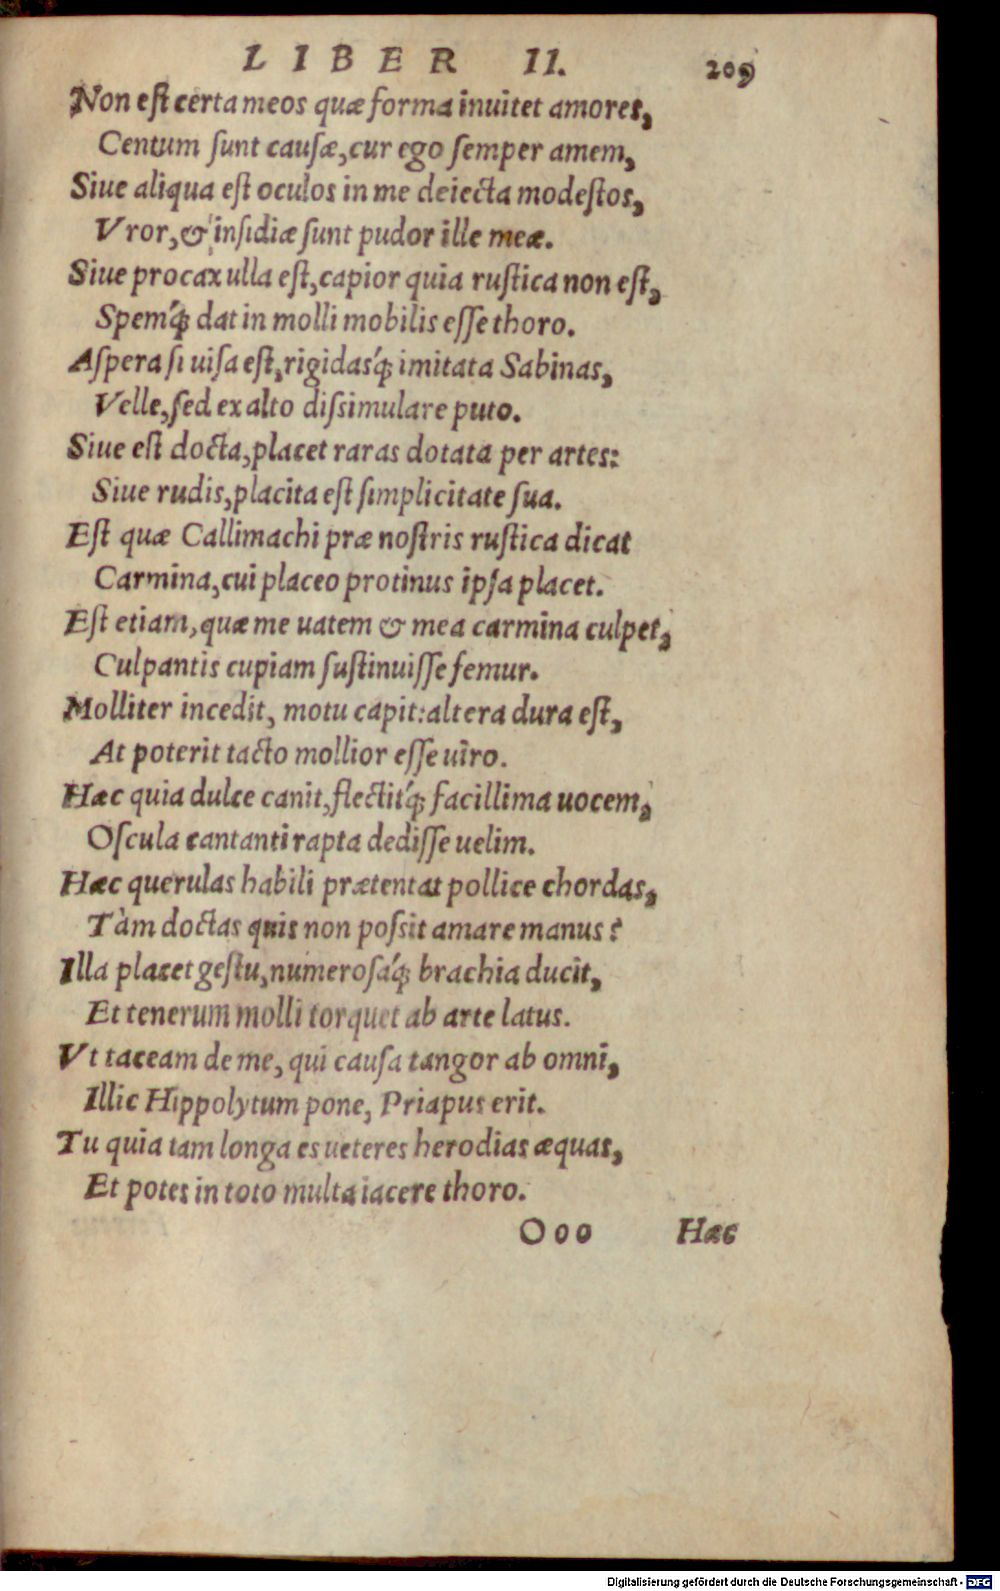 LIBER II. 209
Non est certa meos quæ forma inuitet amores,
Centum sunt causæ, cur ego semper amem,
Siue aliqua est oculos in me deiecta modestos,
Vror, & insidiæ sunt pudor ille meæ.
Siue procax ulla est, capior quia rustica non est,
Spemq́; dat in molli mobilis esse thoro.
Aspera si uisa est, rigidasq́; imitata Sabinas,
Velle, sed ex alto dissimulare puto.
Siue est docta, placet raras dotata per artes:
Siue rudis, placita est simplicitate sua.
Est quæ Callimachi præ nostris rustica dicat
Carmina, cui placeo protinus ipsa placet.
Est etiam, quæ me uatem & mea carmina culpet,
Culpantis cupiam sustinuisse femur.
Molliter incedit, motu capit: altera dura est,
At poterit tacto mollior esse uiro.
Hæc quia dulce canit, flectitq́; facillima uocem,
Oscula cantanti rapta dedisse uelim.
Hæc querulas habili prætentat pollice chordas,
Tàm doctas quis non possit amare manus?
Illa placet gestu, numerosaq́; brachia ducit,
Et tenerum molli torquet ab arte latus.
Vt taceam de me, qui causa tangor ab omni,
Illic Hippolytum pone, Priapus erit.
Tu quia tam longa es ueteres herodias æquas,
Et potes in toto multa iacere thoro.
Ooo Hæc
Digitalisierung gefördert durch die Deutsche Forschungsgemeinschaft - DFG